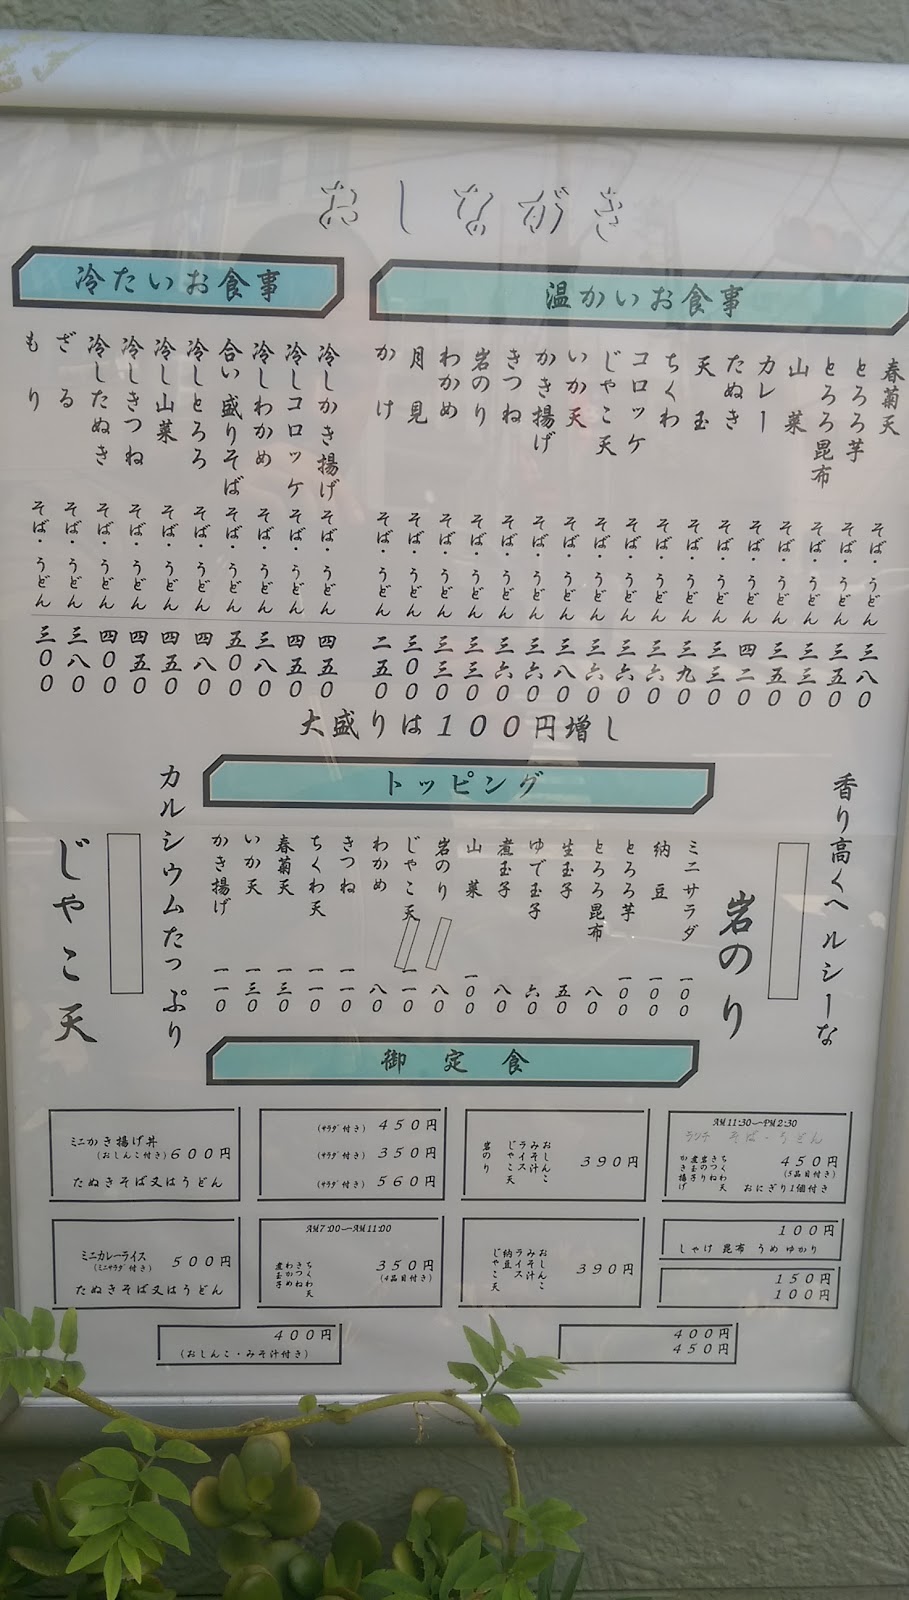 おしながき
温かいお食事
春菊天 そば・うどん 三八０
とろろ芋 そば・うどん 三五０
とろろ昆布 そば・うどん 三三０
山菜 そば・うどん 三五０
カレー そば・うどん 四二０
たぬき そば・うどん 三三０
天玉 そば・うどん 三九０
ちくわ そば・うどん 三六０
コロッケ そば・うどん 三六０
じゃこ天 そば・うどん 三六０
いか天 そば・うどん 三八０
かき揚げ そば・うどん 三六０
きつね そば・うどん 三六０
岩のり そば・うどん 三三０
わかめ そば・うどん 三三０
月見 そば・うどん 三００
かけ そば・うどん 二五０
冷たいお食事
冷しかき揚げ そば・うどん 四五０
冷しコロッケ そば・うどん 四五０
冷しわかめ そば・うどん 三八０
合い盛りそば そば・うどん 五００
冷しとろろ そば・うどん 四八０
冷し山菜 そば・うどん 四五０
冷しきつね そば・うどん 四五０
冷したぬき そば・うどん 四００
ざる そば・うどん 三八０
もり そば・うどん 三００
大盛りは１００円増し
香り高くヘルシーな
岩のり
トッピング
ミニサラダ 一００
納豆 一００
とろろ芋 一００
とろろ昆布 八０
生玉子 五０
ゆで玉子 六０
煮玉子 八０
山菜 一００
岩のり 八０
じゃこ天 一一０
わかめ 八０
きつね 一一０
ちくわ天 一一０
春菊天 一三０
いか天 一三０
かき揚げ 一一０
カルシウムたっぷり
じゃこ天
御定食
AM11:30〜PM2:30
ランチ そば・うどん
ちくわ天
きつね
岩のり
煮玉子
かき揚げ
４５０円
(5品目付き)
おにぎり1個付き
おしんこ
みそ汁
ライス
じゃこ天
岩のり
３９０円
(ｻﾗﾀﾞ付き) ４５０円
(ｻﾗﾀﾞ付き) ３５０円
(ｻﾗﾀﾞ付き) ５６０円
ミニかき揚げ丼
(おしんこ付き) ６００円
たぬきそば又はうどん
１００円
しゃけ 昆布 うめ ゆかり
１５０円
１００円
おしんこ
みそ汁
ライス
納豆
じゃこ天
３９０円
AM7:00〜AM11:00
ちくわ天
きつね
わかめ
煮玉子
３５０円
(4品目付き)
ミニカレーライス
(ミニｻﾗﾀﾞ付き) ５００円
たぬきそば又はうどん
４００円
４５０円
４００円
(おしんこ・みそ汁付き)